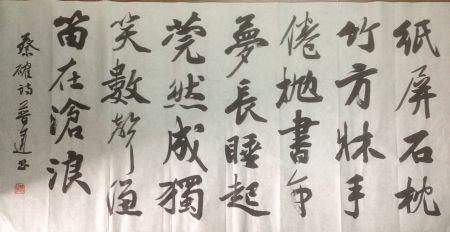 紙屏石枕
竹方牀手
倦抛書午
夢長睡起
莞然成獨
笑數聲漁
笛在滄浪
蔡確詩